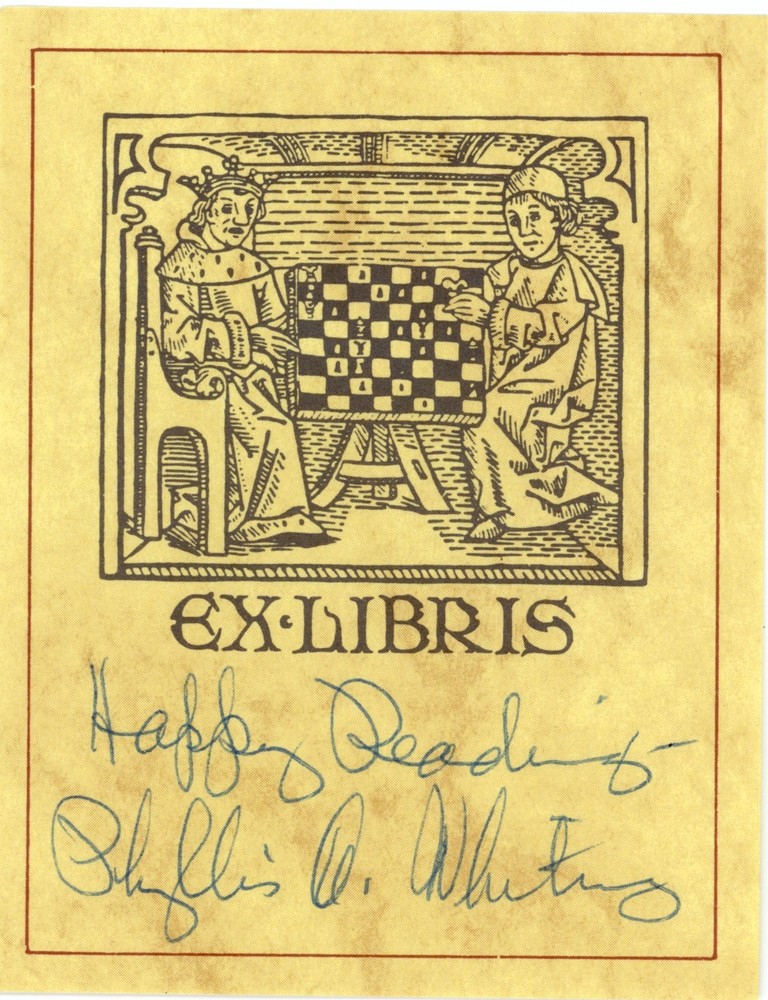 EX·LIBRIS
Happy Reading-
Phyllis A. Whitney